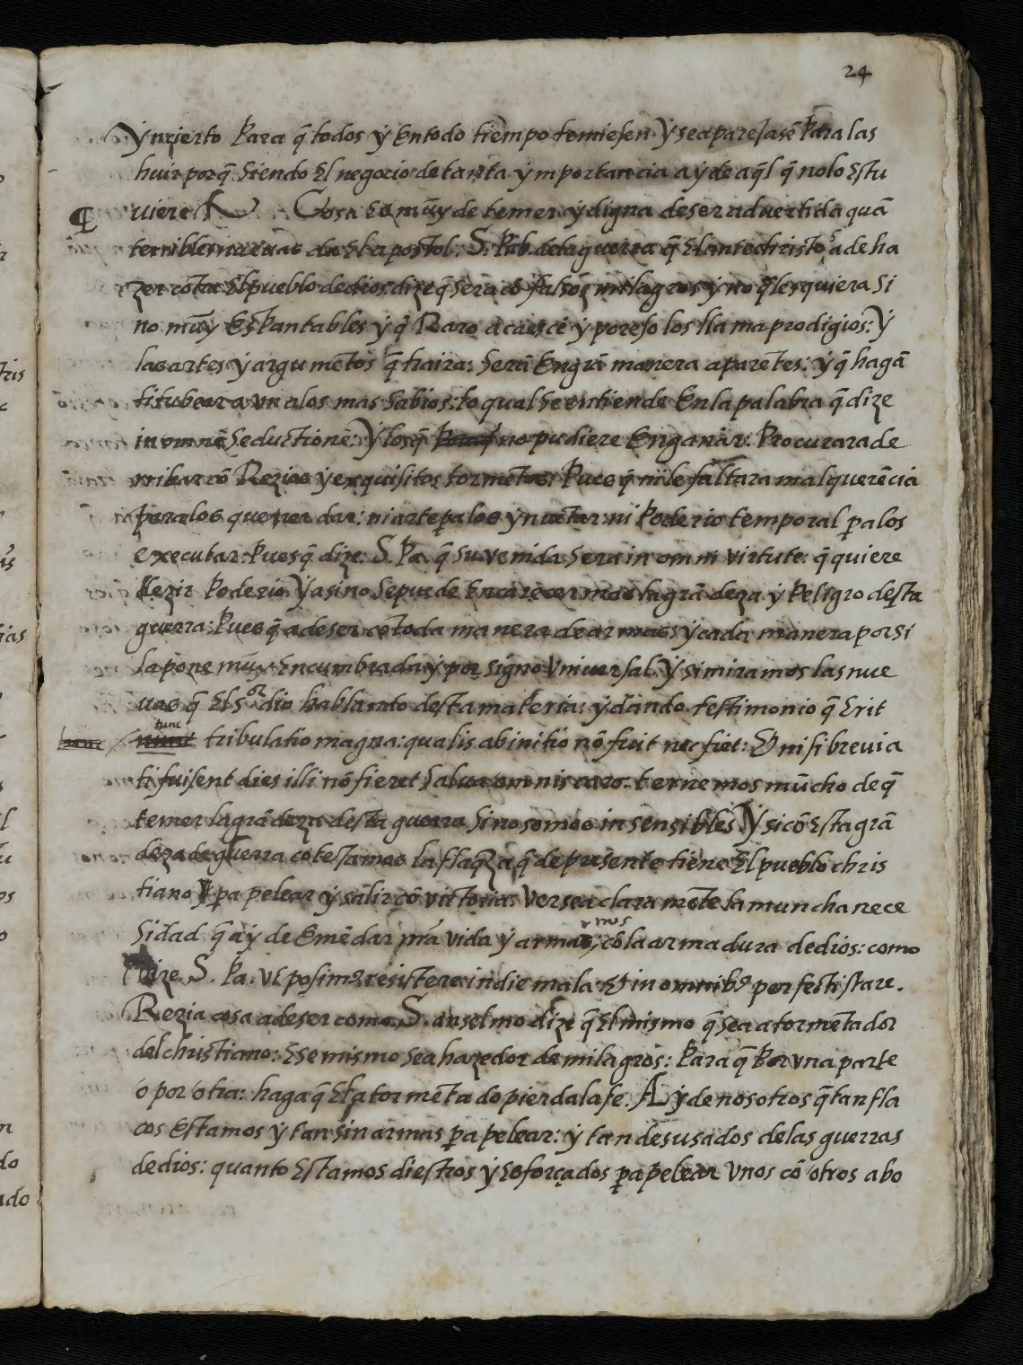 24
ynçierto para q̃ todos y en todo tiempo temiesen y se aparejasẽ para las
huir porq̃ siendo el negocio de tanta ymportancia ay de aq̃l q̃ no lo estu
¶ viere Cosa es muy de temer y digna de ser advertida quã
terriblemente el apostol. S. Pab. dela guerra q̃ el antechristo a de ha
zer cõtra el pueblo de dios. dize q̃ sera cõ falsos milagros y no q̃lesquiera si
no muy espantables y q̃ Raro acaescẽ y poreso los llama prodigios: y
las artes y argumẽtos q̃ traira: serã en grã manera aparẽtes: y q̃ hagã
titubear a un a los mas sabios: lo qual se entiende en la palabra q̃ dize
in omnẽ seductionẽ: y los q̃ no pudiere engañar: Procurara de
rribar cõ Rezios y exquisitos tormẽtos Pues q̃ ni le faltara malquerẽcia
para los que perdar: ni arte pa los ynvẽtar: ni poderio temporal pa los
executar. Pues q̃ dize. S. Pa. q̃ su venida sera in omni virtute: q̃ quiere
dezir Poderio. y asi no se puede encarecer mas la grã deza y Peligro desta
guerra: Pues q̃ a de ser cõ toda manera de armas y cada manera por si
la pone muy encumbrada y por signo universal. y si miramos las nue
vas q̃ el Sor dio hablando desta materia: y dãndo testimonio q̃ erit
tunc tribulatio magna: qualis ab initio nõ fuit nec fiet: & nisi brevia
ti fuisent dies illi nõ fieret salva omnis caro. ternemos mũcho de q̃
temer la grã deza desta guerra si no somos insensibles y si cõ esta grã
deza de guerra cotejamos la flaq̃za q̃ de presente tiene el pueblo chris
tiano pa pelear y salir cõ victoria: verse a claramẽte la muncha nece
sidad q̃ ay de emẽdar nr̃a vida y armarnos cõ la armadura de dios: como
dize. S. Pa. vt posimꝰ resistere in die mala & in omnibꝰ perfecti stare.
Rezia cosa a de ser como. S. anselmo dize q̃ el mismo q̃ sea atormẽtador
del christiano: ese mismo sea hazedor de milagros: Para q̃ Por una parte
o por otra: haga q̃ el atormẽtado pierda la fe. Ay de nosotros q̃ tan fla
cos estamos y tan sin armas pa pelear: y tan desusados de las guerras
de dios: quanto estamos diestros y esforçados pa pelear unos cõ otros abo